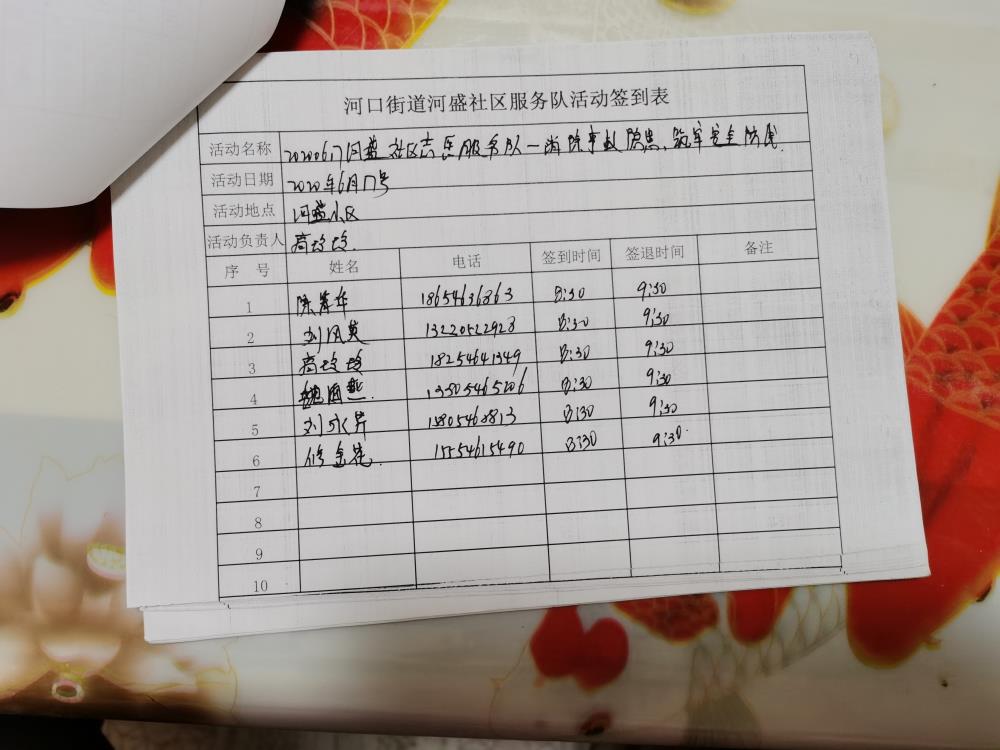 河口街道河盛社区服务队活动签到表
活动名称 20200617河盛社区志愿服务队—消除事故隐患,筑牢安全防线
活动日期 2020年6月17号
活动地点 河盛小区
活动负责人 高玲玲
序 号 姓名 电话 签到时间 签退时间 备注
1 18654636863 8:30 9:30
2 刘凤英 13220522928 8:30 9:30
3 高玲玲 18254641349 8:30 9:30
4 13505465206 8:30 9:30
5 刘永芹 8:30 9:30
6 修金花 15554615490 8:30 9:30
7
8
9
10